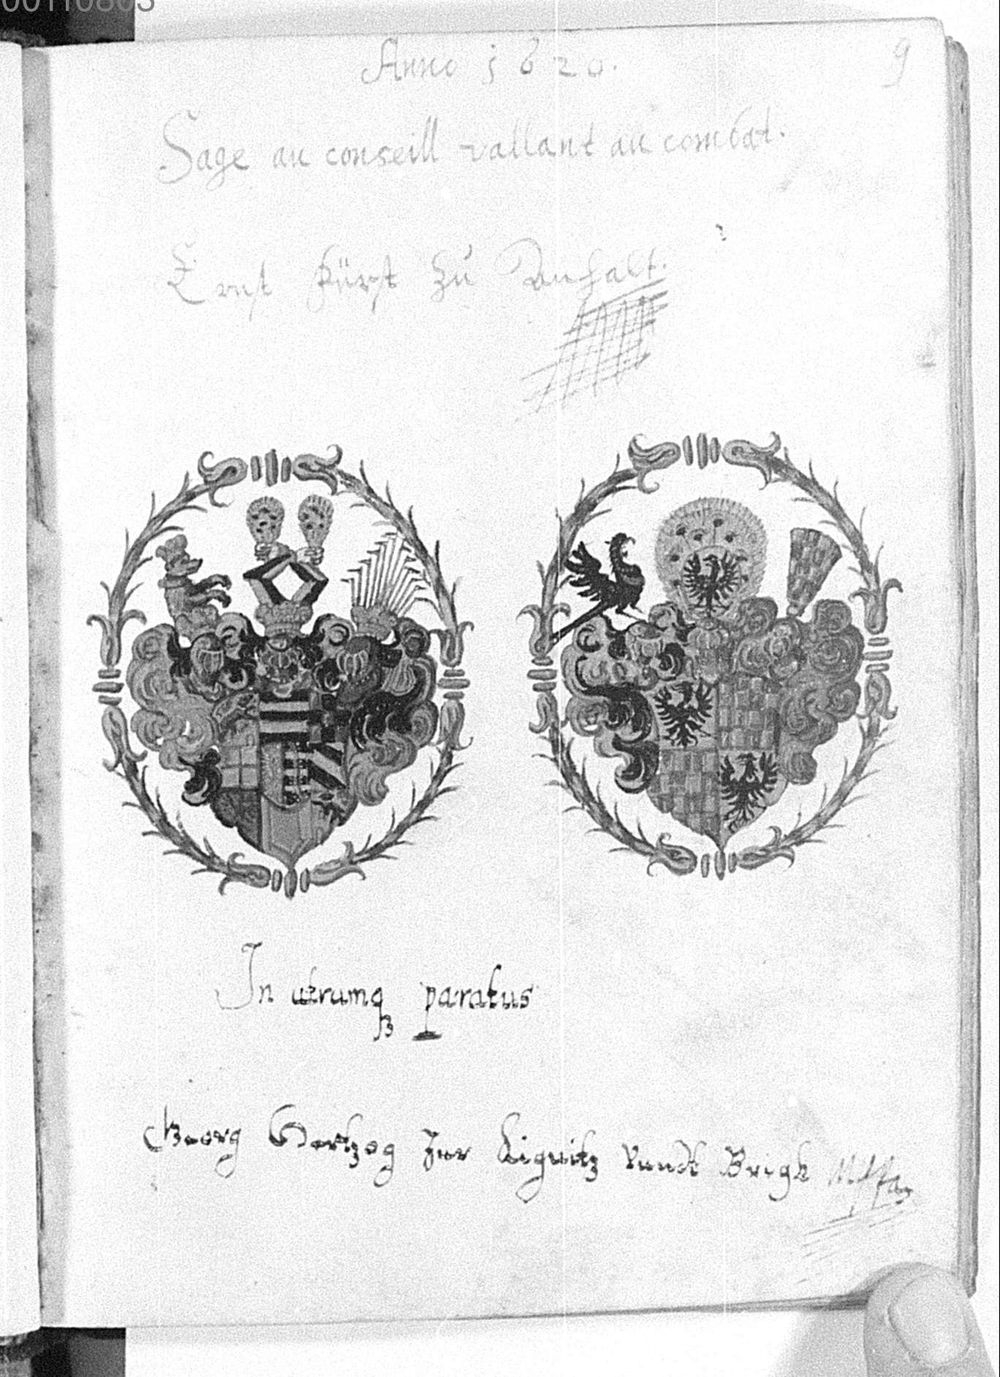 00110803
9
Anno 1620.
Sage au conseill vallant au combat.
Ernst Fürst zu Anhalt.
In utrumqꝫ paratus
Georg Hertzog zur Lignitz vundt Brigk